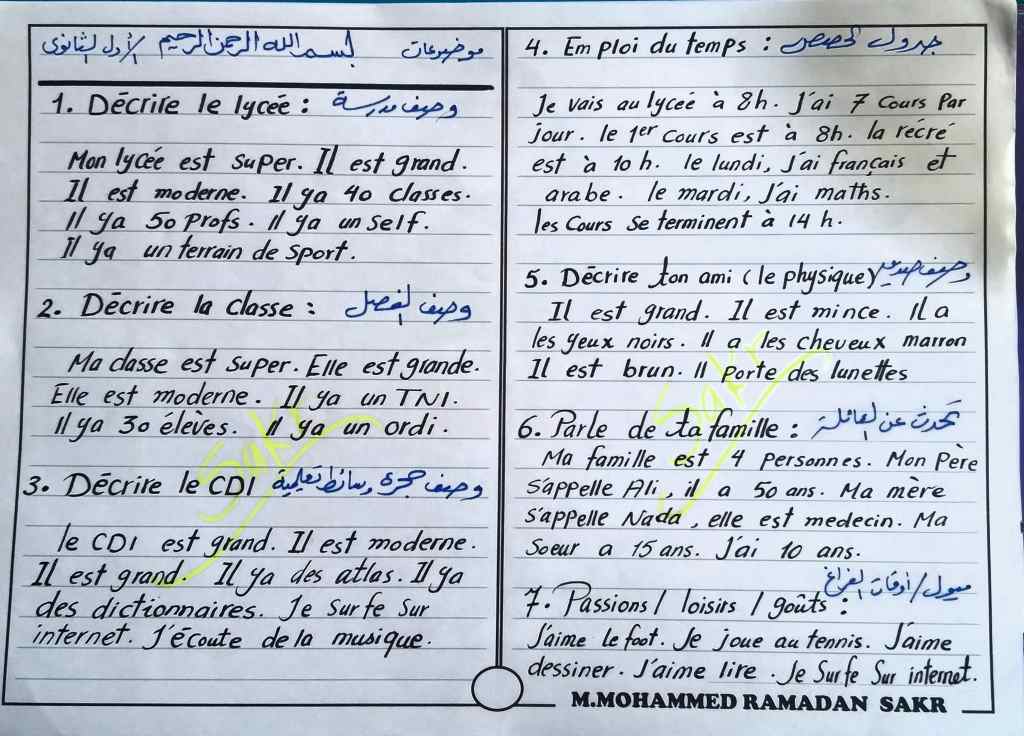 موضوعات بسم الله الرحمن الرحيم الأول الثانوى
1. Dēcrire le lyceé : وصف مدرسة
Mon lyceé est super. Il est grand.
Il est moderne. Il ya 40 classes.
Il ya 50 Profs. Il ya un self.
Il ya un terrain de sport.
2. Décrire la classe : وصف الفصل
Ma classe est super. Elle est grande.
Elle est moderne. Il ya un TNI.
Il ya 30 élèves. Il ya un ordi.
3. Décrire le CDI وصف حجرة وسائط تعليمية
le CDI est grand. Il est moderne.
Il est grand. Il ya des atlas. Il ya
des dictionnaires. Je surfe sur
internet. J'écoute de la musique.
Sakr
4. Emploi du temps : جدول الحصص
Je vais au lyceé à 8h. J'ai 7 Cours Par
jour. le 1er Cours est à 8h. la récré
est à 10 h. le lundi, J'ai français et
arabe. le mardi, J'ai maths.
les Cours se terminent à 14 h.
5. Décrire ton ami (le physique) وصف صديق
Il est grand. Il est mince. Il a
les yeux noirs. Il a les cheveux marron
Il est brun. Il Porte des lunettes
6. Parle de ta famille : تحدث عن العائلة
Ma famille est 4 Personnes. Mon Père
s'appelle Ali, il a 50 ans. Ma mère
s'appelle Nada, elle est medecin. Ma
Soeur a 15 ans. J'ai 10 ans.
ميول/أوقات الفراغ
7. Passions/ loisirs / goûts :
J'aime le foot. Je joue au tennis. J'aime
dessiner. J'aime lire. Je surfe sur internet.
Sakr
M.MOHAMMED RAMADAN SAKR